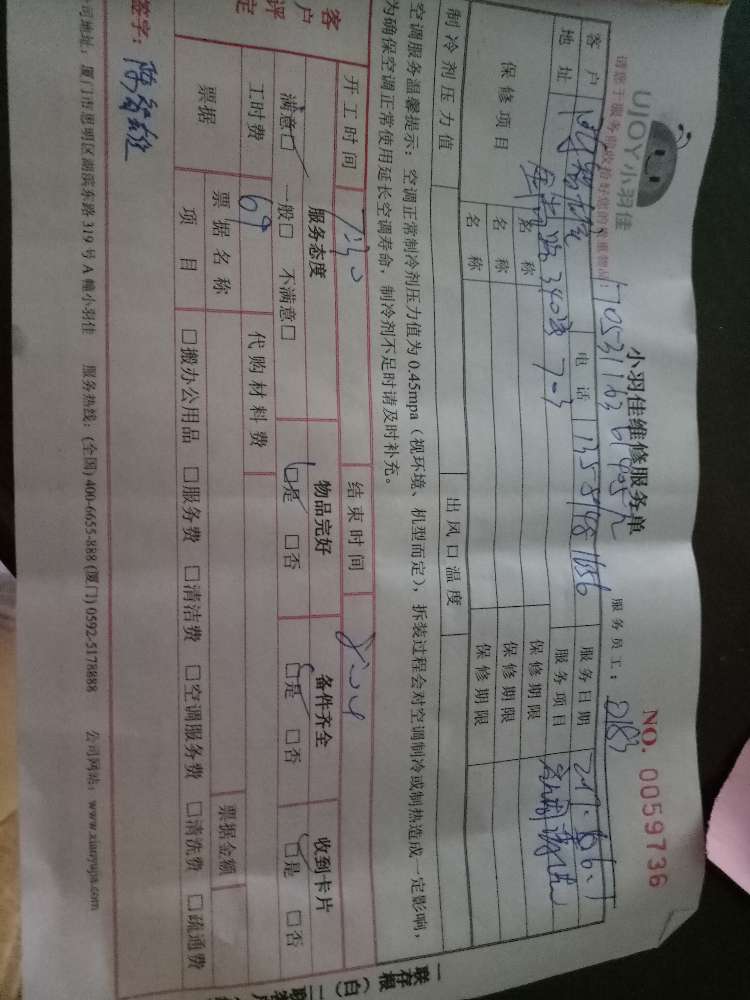 UJOY小羽佳
小羽佳维修服务单
NO. 0059736
请您于服务前收检好您的贵重物品!
服务员工:
客户 电话 服务日期
地址 340号 703 服务项目
保修项目 名称 保修期限
名称 保修期限
名称 保修期限
制冷剂压力值 出风口温度
空调服务温馨提示:空调正常制冷剂压力值为0.45mpa(视环境、机型而定),拆装过程会对空调制冷或制热造成一定影响,
为确保空调正常使用延长空调寿命,制冷剂不足时请及时补充。
开工时间 结束时间
客户评定 服务态度 物品完好 备件齐全 收到卡片
满意□ 一般□ 不满意□ □是 □否 □是 □否 □是 □否
工时费 69 代购材料费
票据 票据名称 票据金额
项目 □搬办公用品 □服务费 □清洁费 □空调服务费 □清洗费 □疏通费
签字:
司地址:厦门市思明区湖滨东路319号A幢小羽佳 服务热线:(全国)400-6655-888 (厦门)0592-5178888 公司网站:www.xiaoyujia.com
一联存根(白)二联客户